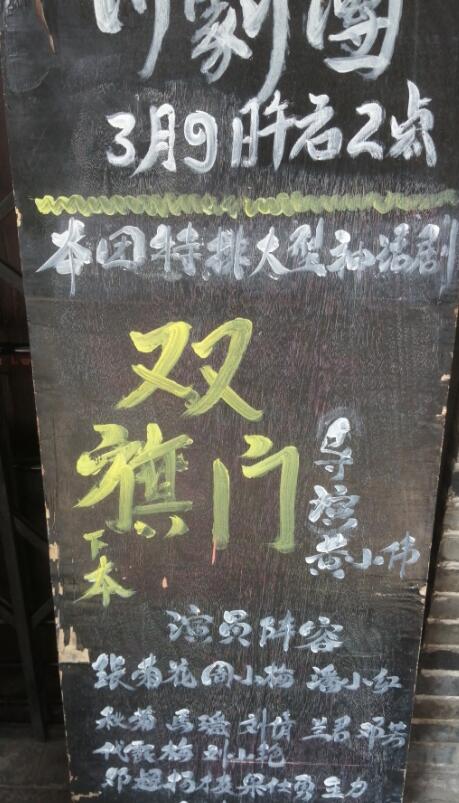 川劇團
3月9日午后2点
本团特排大型神话剧
双
旗门
下本
导演黄小伟
演员阵容
张菊花 周小梅 潘小红
秋菊 马瑶 刘倩 兰君 邓芳
代 梅 刘小艳
邓超 主力